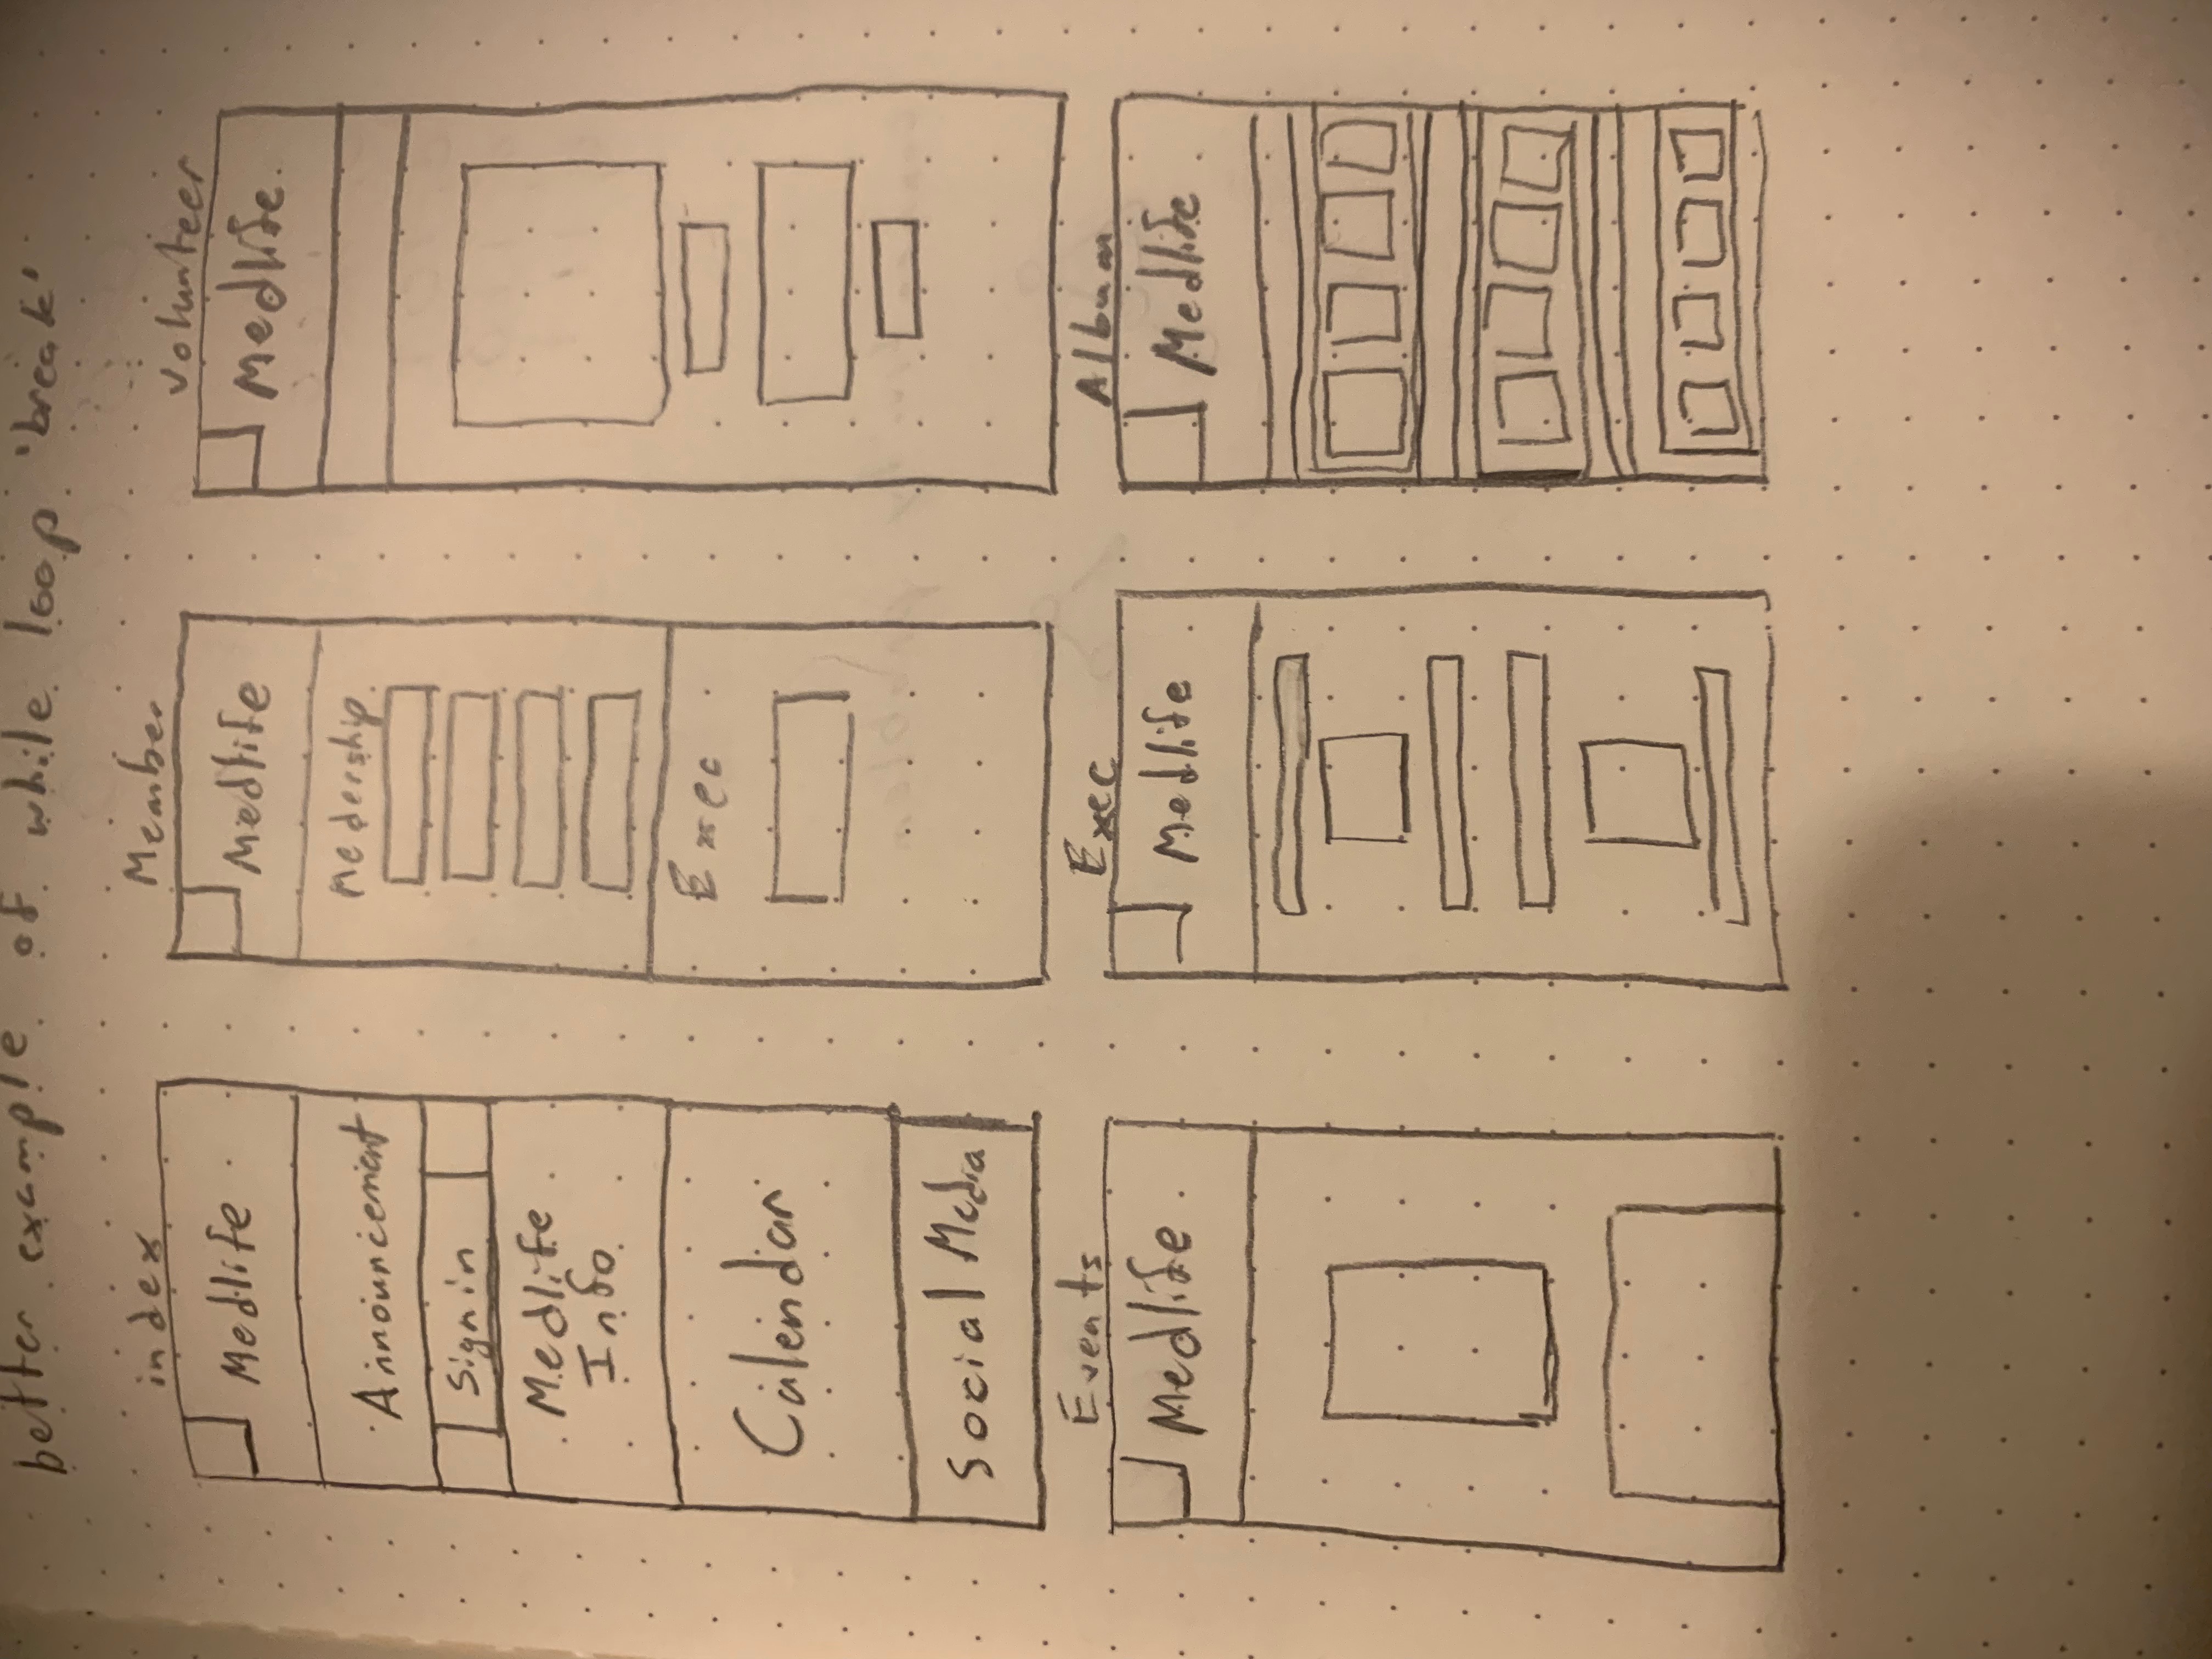 better example of while loop 'break'
index
Medlife
Announcement
Sign in
Medlife
Info
Calendar
Social Media
Member
Medlife
Medership
Exec
Volunteer
Medlife
Events
Medlife
Exec
Medlife
Album
Medlife